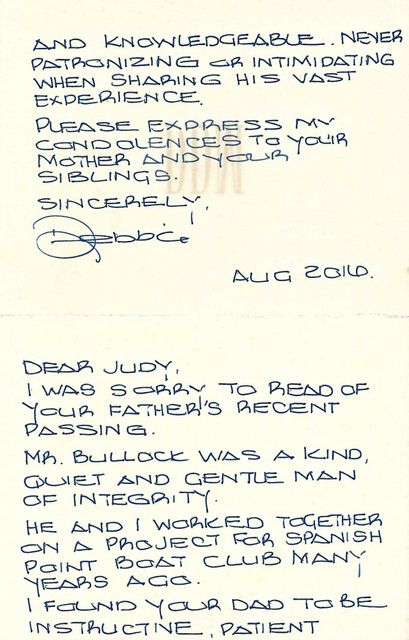 AND KNOWLEDGEABLE. NEVER
PATRONIZING OR INTIMIDATING
WHEN SHARING HIS VAST
EXPERIENCE.
PLEASE EXPRESS MY
CONDOLENCES TO YOUR
MOTHER AND YOUR
SIBLINGS.
SINCERELY,
Debbie
AUG 2016.
DEAR JUDY,
I WAS SORRY TO READ OF
YOUR FATHER'S RECENT
PASSING.
MR. BULLOCK WAS A KIND,
QUIET AND GENTLE MAN
OF INTEGRITY.
HE AND I WORKED TOGETHER
ON A PROJECT FOR SPANISH
POINT BOAT CLUB MANY
YEARS AGO.
I FOUND YOUR DAD TO BE
INSTRUCTIVE, PATIENT